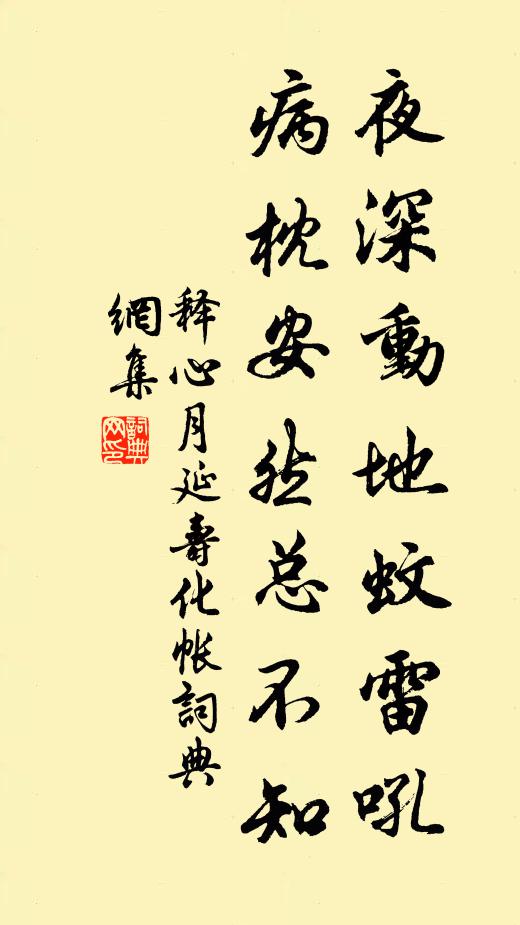 夜深動地蚊雷吼
病枕安然总不知
释心月延壽化帐詞典
網集
詞典網印